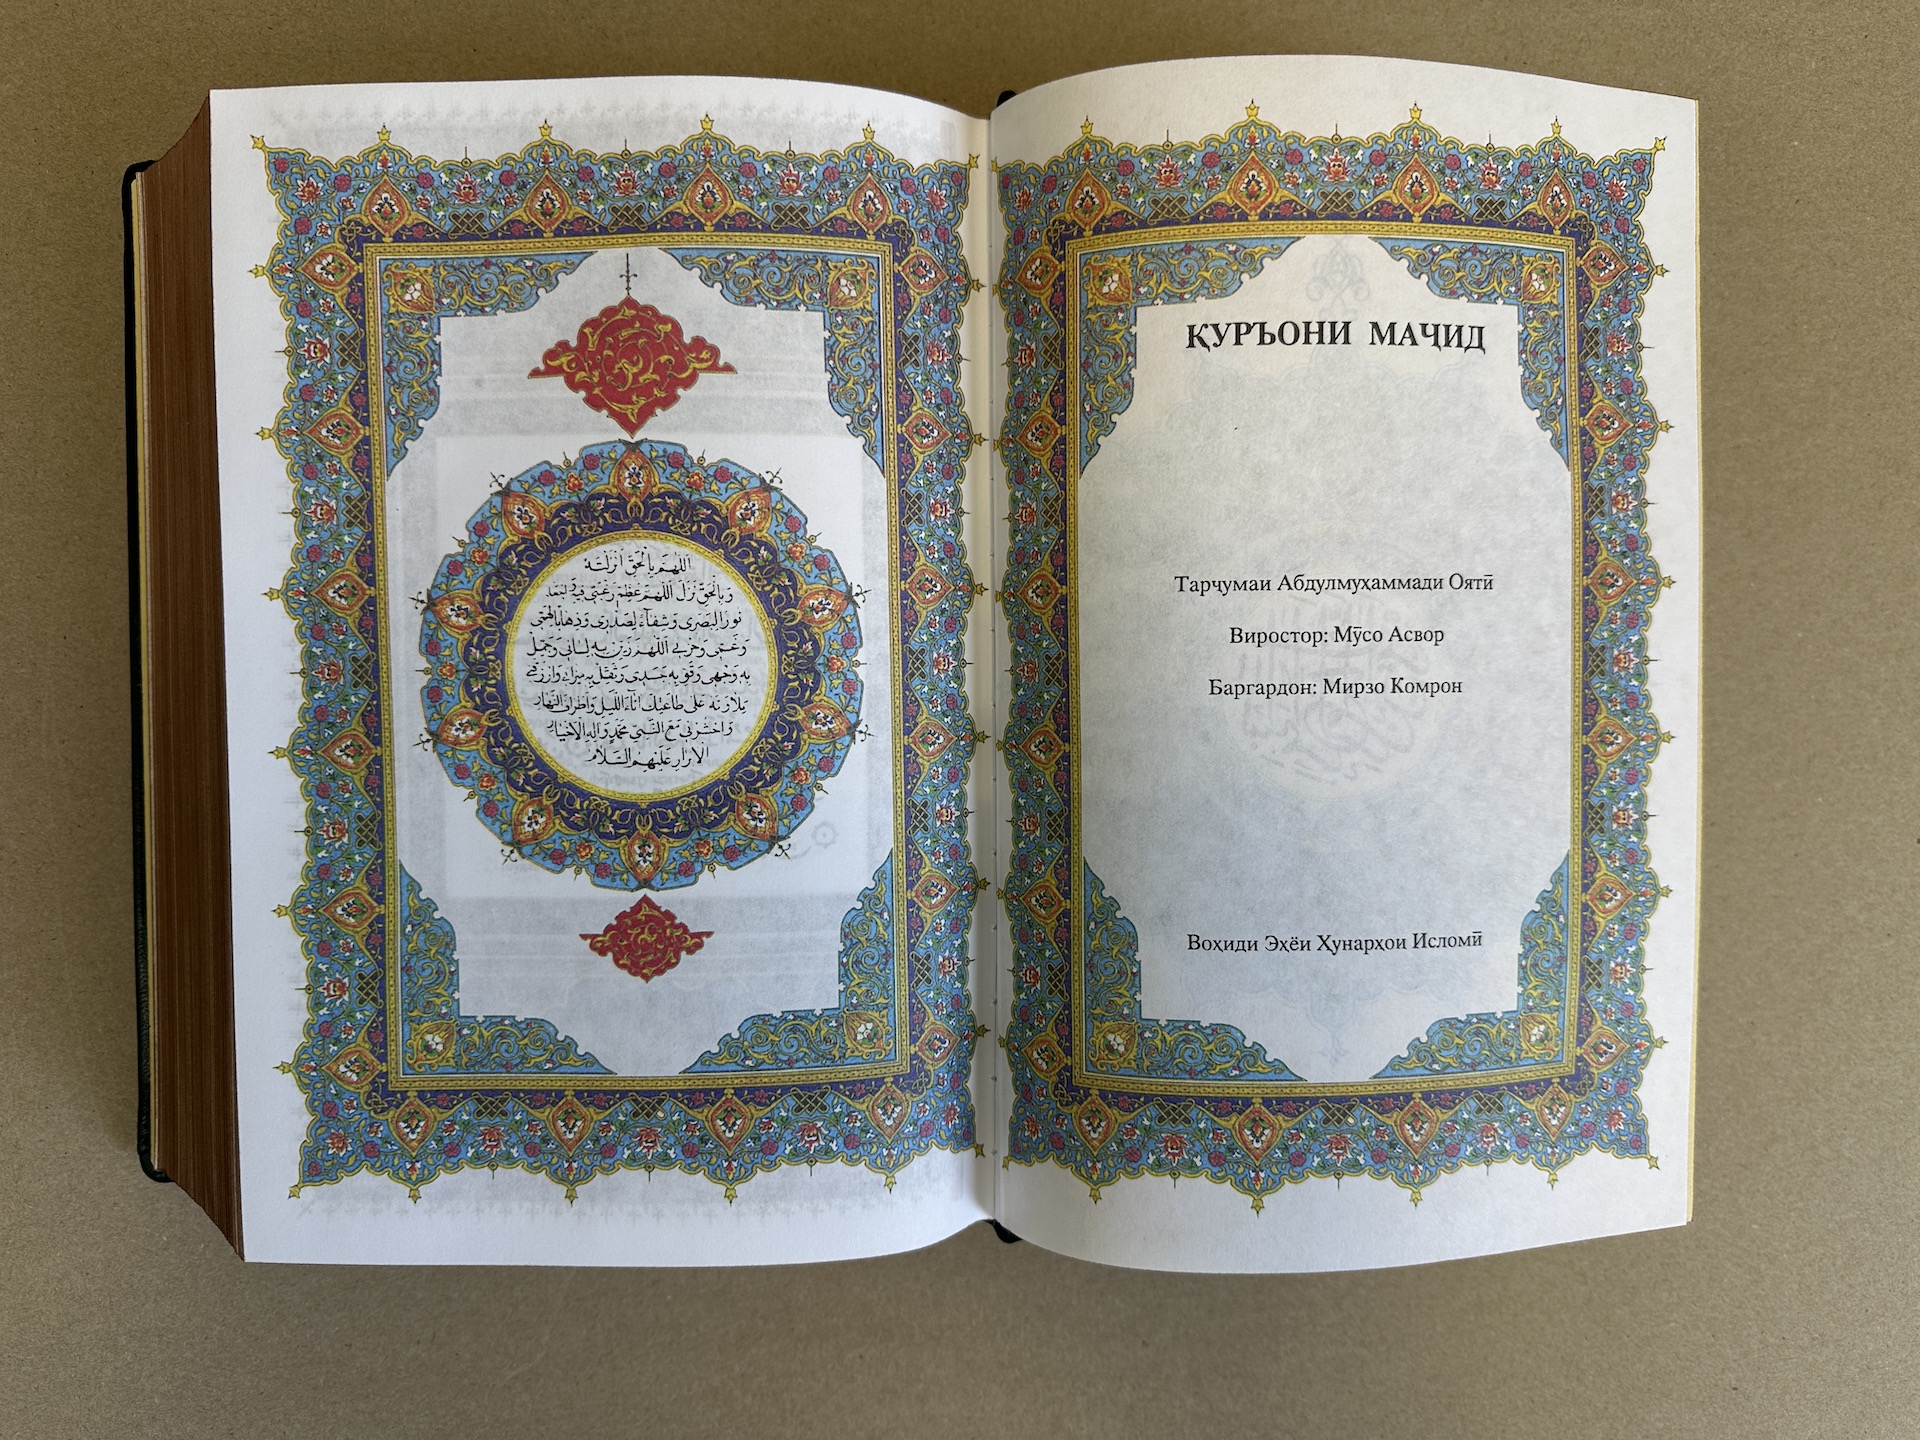 اللهم بالحق انزلته
وبالحق نزل اللهم عظم رغبتی فیه
نورا لبصری وشفاء لصدری وذهابا لهمی
وغمی وحزنی اللهم زین به لسانی وجمل
به وجهی وقو به جسدی وثقل به میزانی وارزقنی
تلاوته علی طاعتك اناء اللیل واطراف النهار
واحشرنی مع النبی محمد واله الاخیار
الابرار علیهم السلام
ҚУРЪОНИ МАҶИД
Тарҷумаи Абдулмуҳаммади Оятӣ
Виростор: Мӯсо Асвор
Баргардон: Мирзо Комрон
Воҳиди Эҳёи Ҳунарҳои Исломӣ